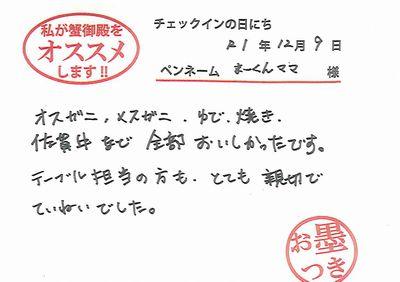 私が蟹御殿を
オススメ
します!!
チェックインの日にち
21年12月9日
ペンネーム まーくんママ 様
オスガニ、メスガニ、ゆで、焼き、
佐賀牛など全部おいしかったです。
テーブル担当の方も、とても親切で
ていねいでした。
お墨
つき